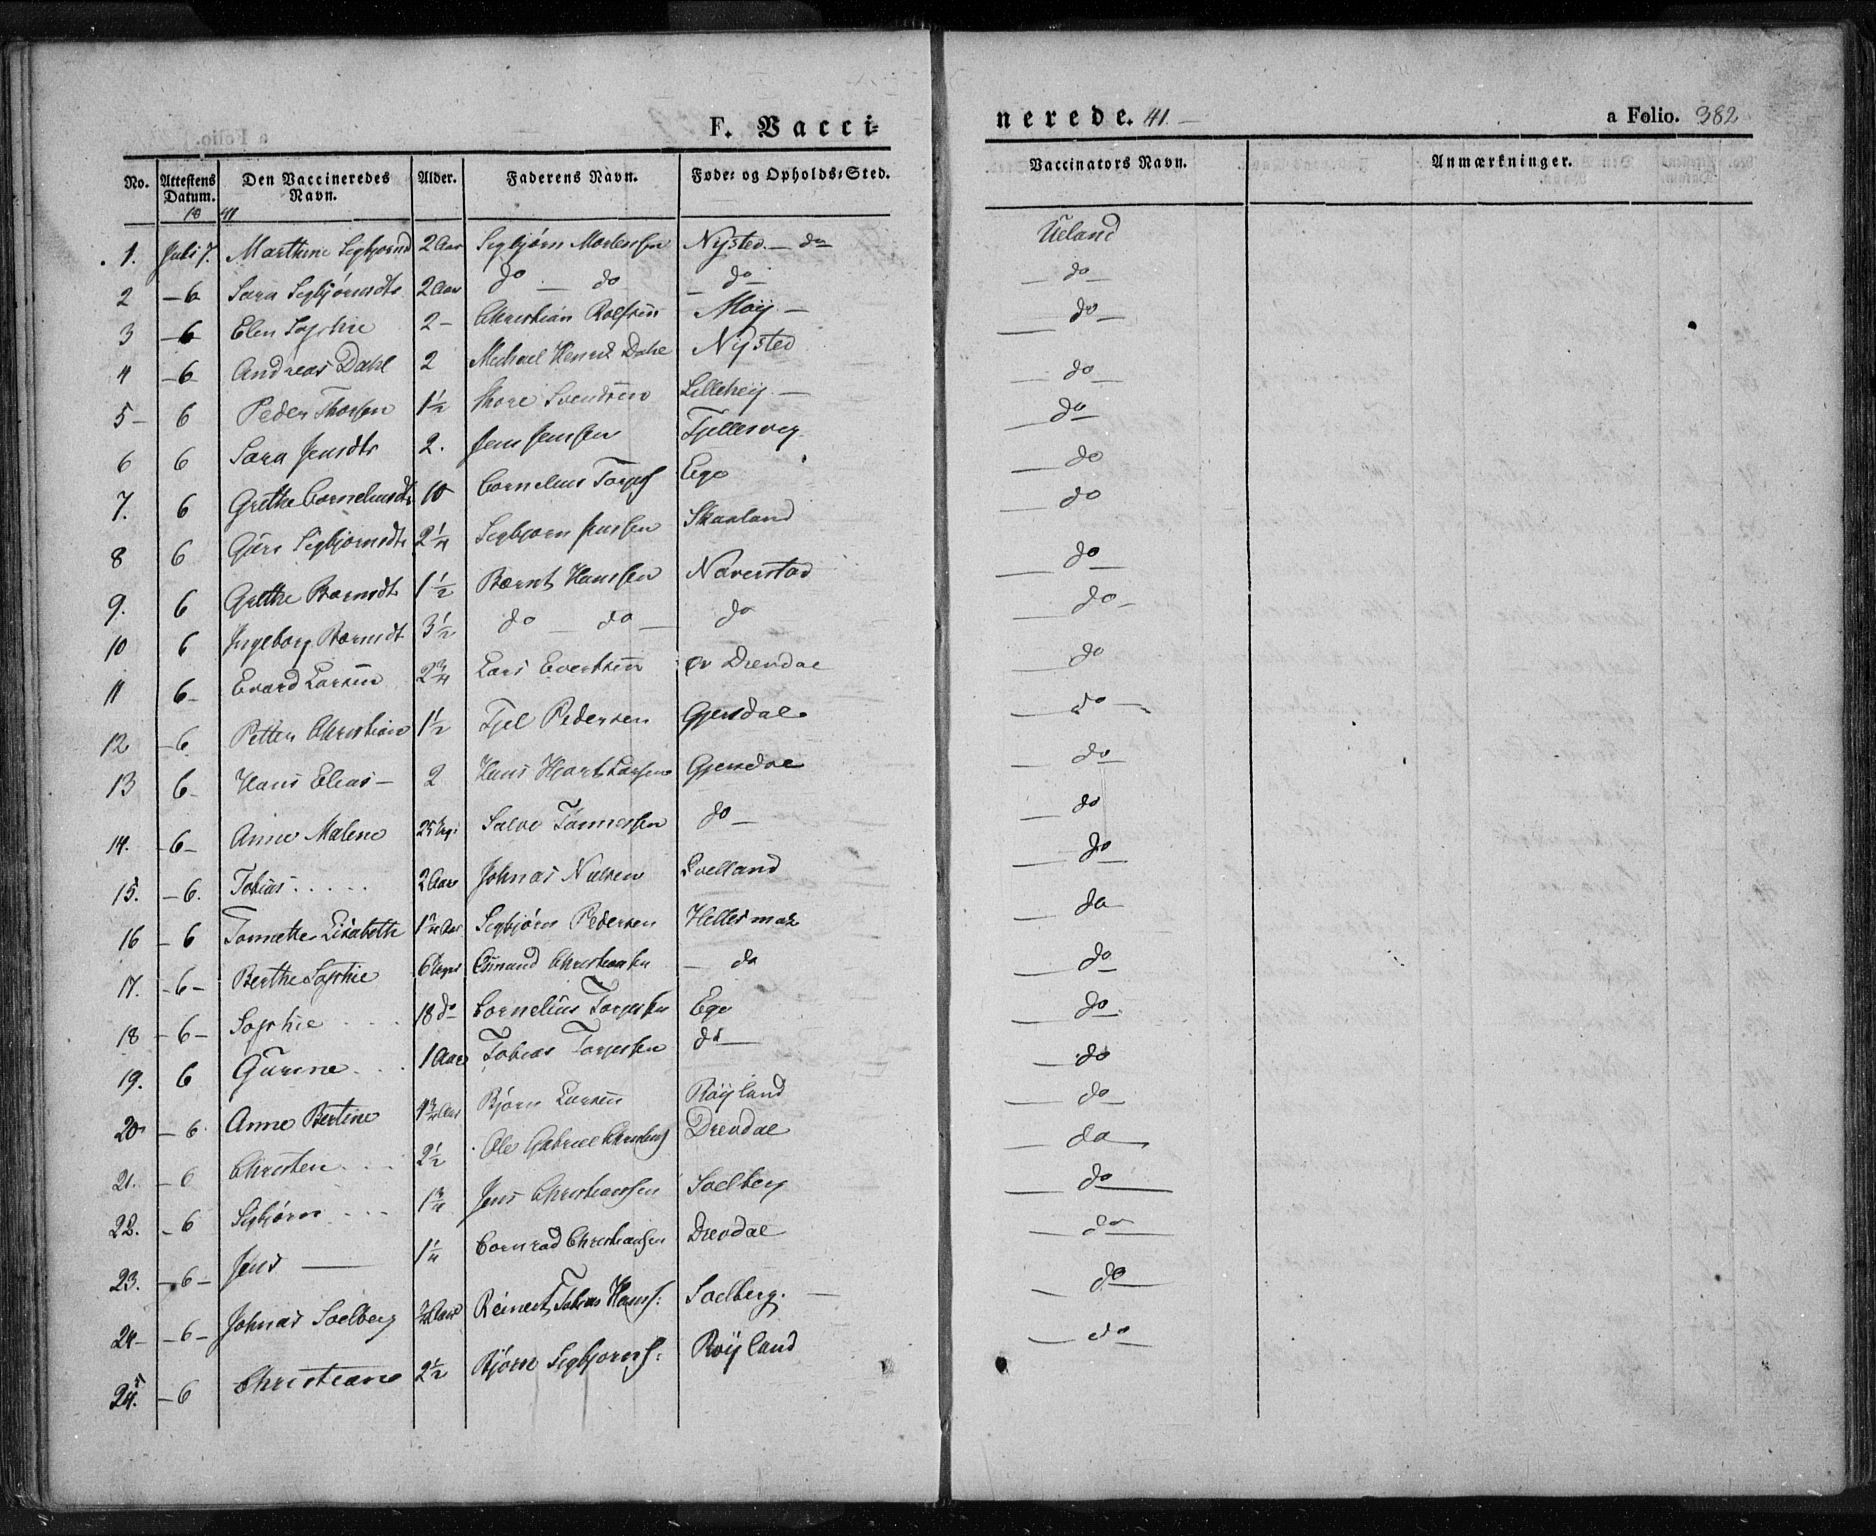 F. Vacci=
nerede. 41. —
a Folio. 382
No. Attestens Datum. Den Vaccineredes Navn. Alder. Faderens Navn. Føde= og Opholds=Sted. Vaccinators Navn. Anmærkninger.
18 41
1. Juli 7. Marthine Segbjornd 2 Aar Segbjørn Mortensen Nysted — do Ueland
2 — 6 Sara Segbjørnsdtr 2 Aar do — do — do — do —
3 — 6 Elen Sophie 2 — Christian Rolfsen Møy — do —
4 — 6 Andreas Dahl 2 Michael Henrik Dahl Nysted — do —
5 — 6 Peder Thorsen 1½ Thore Svendsen Lillehey — do
6 6 Sara Jensdtr 2. Jens Jensen Fjellesvey — do
7. 6 Grethe Corneliusdtr 10 Cornelius Torjes Ege — do
8 6 Segbjornsdtr 2¼ Segbjorn Jensen Skaaland — do —
9. 6 Grethe Berntsdtr 1½ Bærnt Hansen Naverstad — do —
10 6 Ingeborg Berntsdt 3½ do — do — do — do
11 6 — Evard Larsen 2¾ Lars Evertsen øv Drevdal — do —
12 — 6 Petter Christian 1½ Fjel Pedersen Gjersdal — do —
13 6 — Hans Elias — 2 Hans Hjort Larsen Gjersdal — do
14. — 6 — Anne Malene 25 Salve Tønnessen do — — do
15. — 6. Tobias . . . . . 2 Aar Johnas Nielsen Svelland — do
16 — 6 Tomæthe Lisabeth Segbjørn Pedersen Hellesmark — do
17. — 6 — Berthe Sophie 6 Osmund Christiansen — do — do
18 — 6 — Sophie . . . . 18 do Cornelius Torjesen Ege — do
19. 6 Gurine . . . 1 Aar Tobias Torjessen do — — do
20 — 6 Anne Bertine 1¾ Aar Bjørn Larsen Røyland — do
21. — 6 Christen . . . 2½ Ole Gabriel Drevdal — do
22. — 6 Segbjørn . . . 1¾ Jens Christiansen Soelberg — do
23. — 6 — Jens — 1¼ Conrad Christiansen Drevdal — do —
24 — — 6 — Johnas Soelberg Reinert Tobias Hans: Soelberg. — — do
25. — 6 Christiane 2½ Bjørn Segbjorns: Røyland — do